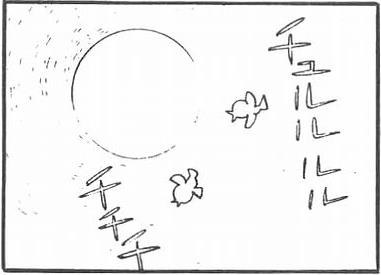 チュルルルル
チチチ